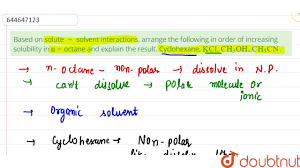 644647123
Based on solute – solvent interactions, arrange the following in order of increasing
solubility in n – octane and explain the result. Cyclohexane, KCl, CH₃OH, CH₃CN.
→ n-octane – non-polar → dissolve in N.P.
→ can't dissolve → polar molecule or
ionic
→ organic solvent
→ Cyclohexane → Non-polar
doubtnut